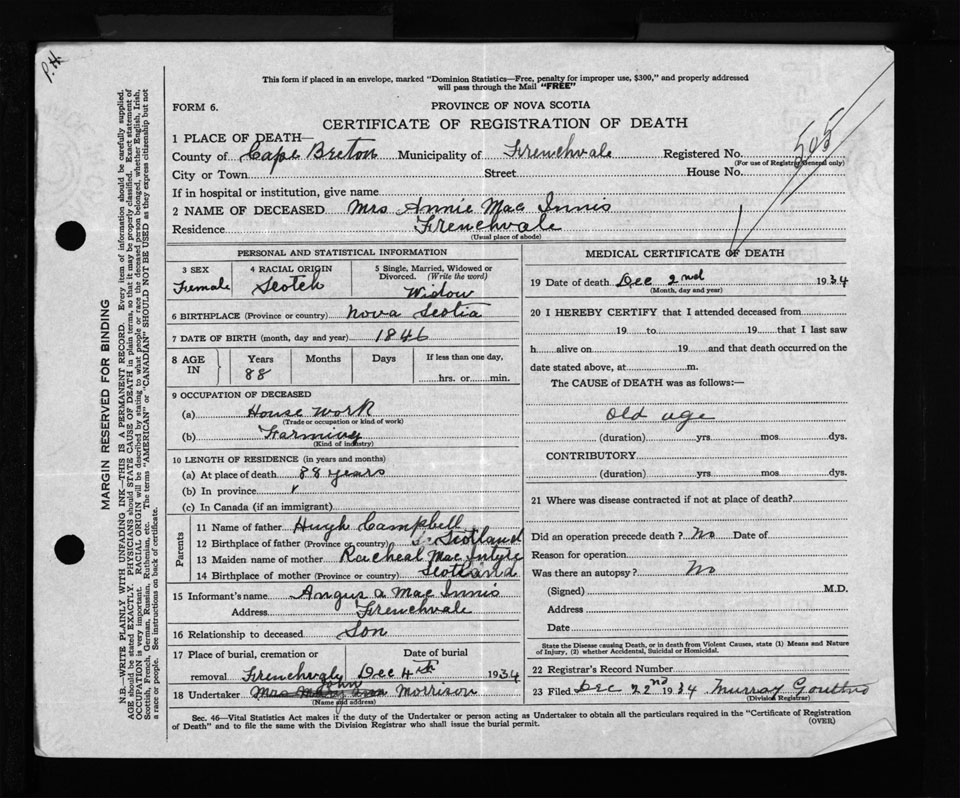 P.H
This form if placed in an envelope, marked "Dominion Statistics—Free, penalty for improper use, $300," and properly addressed
will pass through the Mail "FREE"
FORM 6.
PROVINCE OF NOVA SCOTIA
CERTIFICATE OF REGISTRATION OF DEATH
505
1 PLACE OF DEATH—
County of Cape Breton Municipality of Frenchvale Registered No.
(For use of Registrar General only)
City or Town Street House No.
If in hospital or institution, give name
2 NAME OF DECEASED Mrs Annie Mac Innis
Residence Frenchvale
(Usual place of abode)
PERSONAL AND STATISTICAL INFORMATION
3 SEX 4 RACIAL ORIGIN 5 Single, Married, Widowed or
Divorced. (Write the word)
Female Scotch Widow
6 BIRTHPLACE (Province or country) Nova Scotia
7 DATE OF BIRTH (month, day and year) 1846
8 AGE IN Years Months Days If less than one day,
88 hrs. or min.
9 OCCUPATION OF DECEASED
(a) House work
(Trade or occupation or kind of work)
(b) Farming
(Kind of industry)
10 LENGTH OF RESIDENCE (in years and months)
(a) At place of death 88 years
(b) In province
(c) In Canada (if an immigrant)
Parents
11 Name of father Hugh Campbell
12 Birthplace of father (Province or country) Scotland
13 Maiden name of mother Racheal Mac Intyre
14 Birthplace of mother (Province or country) Scotland
15 Informant's name Angus A Mac Innis
Address Frenchvale
16 Relationship to deceased Son
17 Place of burial, cremation or removal Date of burial
Frenchvale Dec 4th 1934
18 Undertaker Mrs John Morrison
(Name and address)
MEDICAL CERTIFICATE OF DEATH
19 Date of death Dec 2nd 1934
(Month, day and year)
20 I HEREBY CERTIFY that I attended deceased from
19 to 19 that I last saw
h alive on 19 and that death occurred on the
date stated above, at m.
The CAUSE of DEATH was as follows:—
Old age
(duration) yrs. mos. dys.
CONTRIBUTORY
(duration) yrs. mos. dys.
21 Where was disease contracted if not at place of death?
Did an operation precede death ? No Date of
Reason for operation
Was there an autopsy? No
(Signed) M.D.
Address
Date
State the Disease causing Death, or in death from Violent Causes, state (1) Means and Nature
of Injury, (2) whether Accidental, Suicidal or Homicidal.
22 Registrar's Record Number
23 Filed Dec 22nd 1934 Murray
(Division Registrar)
Sec. 46—Vital Statistics Act makes it the duty of the Undertaker or person acting as Undertaker to obtain all the particulars required in the "Certificate of Registration
of Death" and to file the same with the Division Registrar who shall issue the burial permit.
(OVER)
MARGIN RESERVED FOR BINDING
N.B.—WRITE PLAINLY WITH UNFADING INK—THIS IS A PERMANENT RECORD. Every item of information should be carefully supplied.
AGE should be stated EXACTLY. PHYSICIANS should STATE CAUSE OF DEATH in plain terms, so that it may be properly classified. Exact statement of
OCCUPATION is very important. RACIAL ORIGIN will be described by stating to what people or race the deceased person belonged, whether English, Irish,
Scottish, French, German, Russian, Ruthenian, etc. The terms "AMERICAN" or "CANADIAN" SHOULD NOT BE USED as they express citizenship but not
a race or people. See instructions on back of certificate.